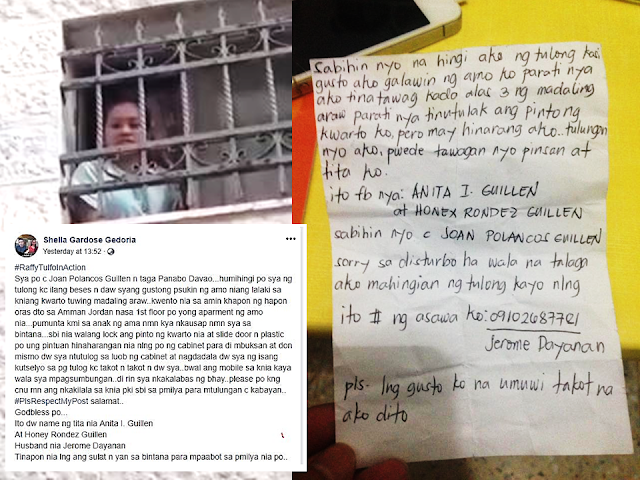 Shella Gardose Gedoria
Yesterday at 13:52
#RaffyTulfoInAction
Sya po c Joan Polancos Guillen n taga Panabo Davao...humihingi po sya ng
tulong kc ilang beses n daw syang gustong psukin ng amo niang lalaki sa
kniang kwarto tuwing madaling araw..kwento nia sa amin khapon ng hapon
oras dto sa Amman Jordan nasa 1st floor po yong aparment ng amo
nia...pumunta kmi sa anak ng ama nmn kya nkausap nmn sya sa
bintana...sbi nia walang lock ang pinto ng kwarto nia at slide door n plastic
po ung pintuan hinaharangan nia nlng po ng cabinet para di mbuksan at don
mismo dw sya ntutulog sa luob ng cabinet at nagdadala dw sya ng isang
kutselyo sa pg tulog kc takot n takot n dw sya..bwal ang mobile sa knia kaya
wala sya mpagsumbungan..di rin sya nkakalabas ng bhay..please po kng
cnu mn ang nkakilala sa knia pki sbi sa pmilya para mtulungan c kabayan..
#PlsRespectMyPost salamat..
Godbless po...
Ito dw name ng tita nia Anita I. Guillen
At Honey Rondez Guillen
Husband nia Jerome Dayanan
Tinapon nia lng ang sulat n yan sa bintana para mpaabot sa pmilya nia po..
Sabihin nyo na hingi ako ng tulong kasi
gusto ako galawin ng amo ko parati nya
ako tinatawag kada alas 3 ng madaling
araw parati nya tinutulak ang pinto ng
kwarto ko, pero may hinarang ako..tulungan
nyo ako, pwede tawagan nyo pinsan at
tita ko.
ito fb nya: ANITA I. GUILLEN
at HONEX RONDEZ GUILLEN
sabihin nyo c JOAN POLANCOS GUILLEN
sorry sa disturbo ha wala na talaga
ako mahingian ng tulong kayo nlng
ito # ng asawa ko: 09102687721
Jerome Dayanan
pls- lng gusto ko na umuwi takot na
ako dito